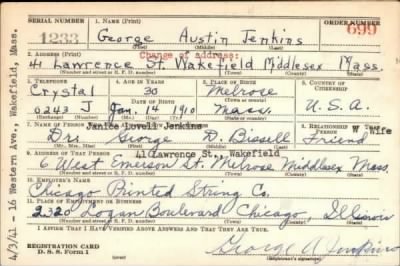 SERIAL NUMBER 1. NAME (Print) ORDER NUMBER
1233 George Austin Jenkins 699
(First) (Middle) (Last)
2. ADDRESS (Print) Change of address:
41 Lawrence St. Wakefield Middlesex Mass.
(Number and street or R. F. D. number) (Town) (County) (State)
3. TELEPHONE 4. AGE IN YEARS 5. PLACE OF BIRTH 6. COUNTRY OF CITIZENSHIP
Crystal 30 Melrose
DATE OF BIRTH (Town or county)
0243 J Jan. 14 1910 Mass. U.S.A.
(Exchange) (Number) (Mo.) (Day) (Yr.) (State or country)
7. NAME OF PERSON Janice Lovell Jenkins RELATIONSHIP OF PERSON Wife
Dr. George D. Bissell Friend
(Mr., Mrs., Miss) (First) (Middle) (Last)
9. ADDRESS OF THAT PERSON 41 Lawrence St., Wakefield
6 West Emerson St. Melrose Middlesex Mass.
(Number and street or R. F. D. number) (Town) (County) (State)
10. EMPLOYER'S NAME
Chicago Printed String Co.
11. PLACE OF EMPLOYMENT OR BUSINESS
2320 Logan Boulevard Chicago, Illinois
(Number and street or R. F. D. number) (Town) (County) (State)
I AFFIRM THAT I HAVE VERIFIED ABOVE ANSWERS AND THAT THEY ARE TRUE.
REGISTRATION CARD
D. S. S. Form 1 George A Jenkins
(Registrant's signature)
4/3/41 - 16 Western Ave., Wakefield, Mass.